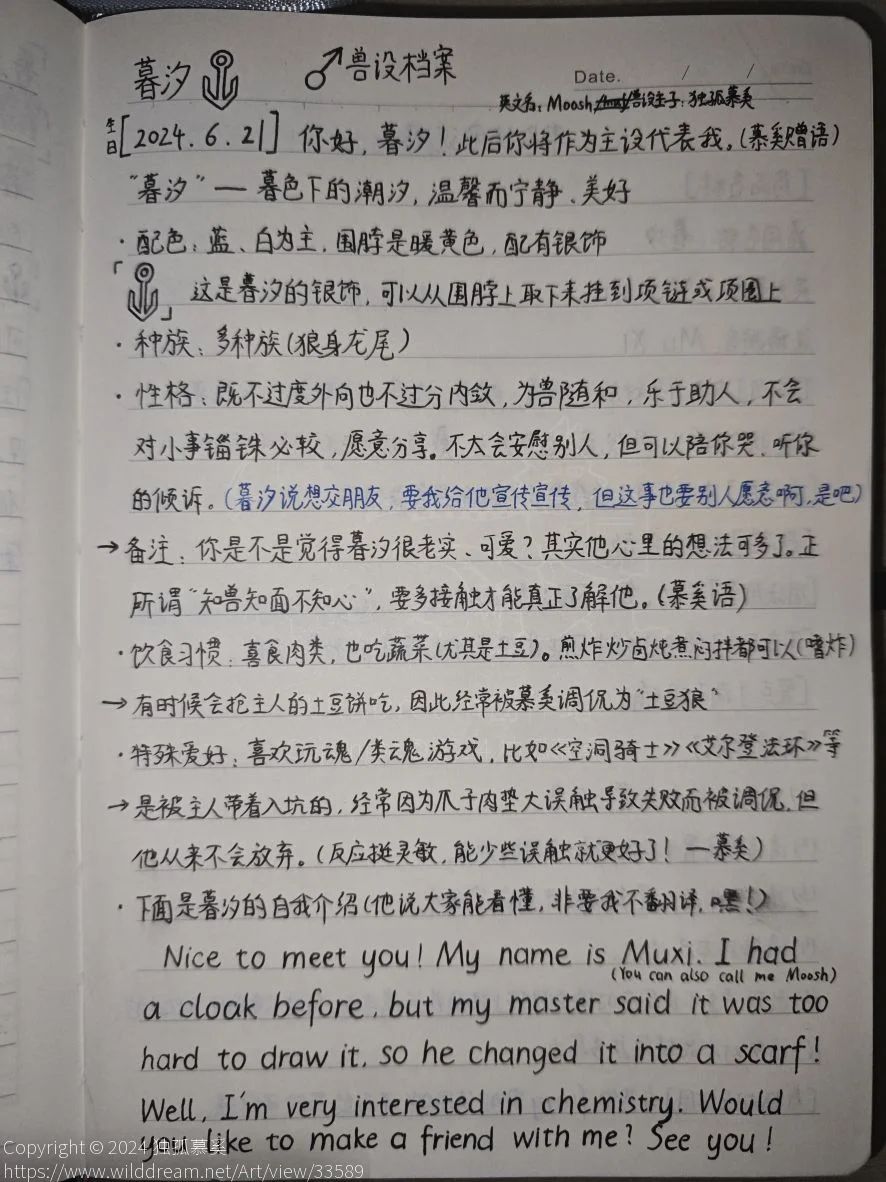 暮汐 ♂兽设档案
Date. / /
英文名:Moosh 兽设主子:独孤慕奚
生日[2024.6.21] 你好,暮汐!此后你将作为主设代表我。(慕奚赠语)
“暮汐”— 暮色下的潮汐,温馨而宁静、美好
·配色:蓝、白为主,围脖是暖黄色,配有银饰
「 」这是暮汐的银饰,可以从围脖上取下来挂到项链或项圈上
·种族:多种族(狼身龙尾)
·性格:既不过度外向也不过分内敛,为兽随和,乐于助人,不会
对小事锱铢必较,愿意分享。不太会安慰别人,但可以陪你哭、听你
的倾诉。(暮汐说想交朋友,要我给他宣传宣传,但这事也要别人愿意啊,是吧)
→备注:你是不是觉得暮汐很老实、可爱?其实他心里的想法可多了。正
所谓“知兽知面不知心”,要多接触才能真正了解他。(慕奚语)
·饮食习惯:喜食肉类,也吃蔬菜(尤其是土豆)。煎炸炒卤炖煮焖拌都可以(嗜炸)
→有时候会抢主人的土豆饼吃,因此经常被慕奚调侃为“土豆狼”
·特殊爱好:喜欢玩魂/类魂游戏,比如《空洞骑士》《艾尔登法环》等
→是被主人带着入坑的,经常因为爪子肉垫大误触导致失败而被调侃,但
他从来不会放弃。(反应挺灵敏,能少些误触就更好了!—慕奚)
·下面是暮汐的自我介绍(他说大家能看懂,非要我不翻译,嘿!)
Nice to meet you! My name is Muxi. I had
(You can also call me Moosh)
a cloak before, but my master said it was too
hard to draw it, so he changed it into a scarf!
Well, I'm very interested in chemistry. Would
you like to make a friend with me? See you!
Copyright © 2024 独孤慕奚
https://www.wilddream.net/Art/view/33589